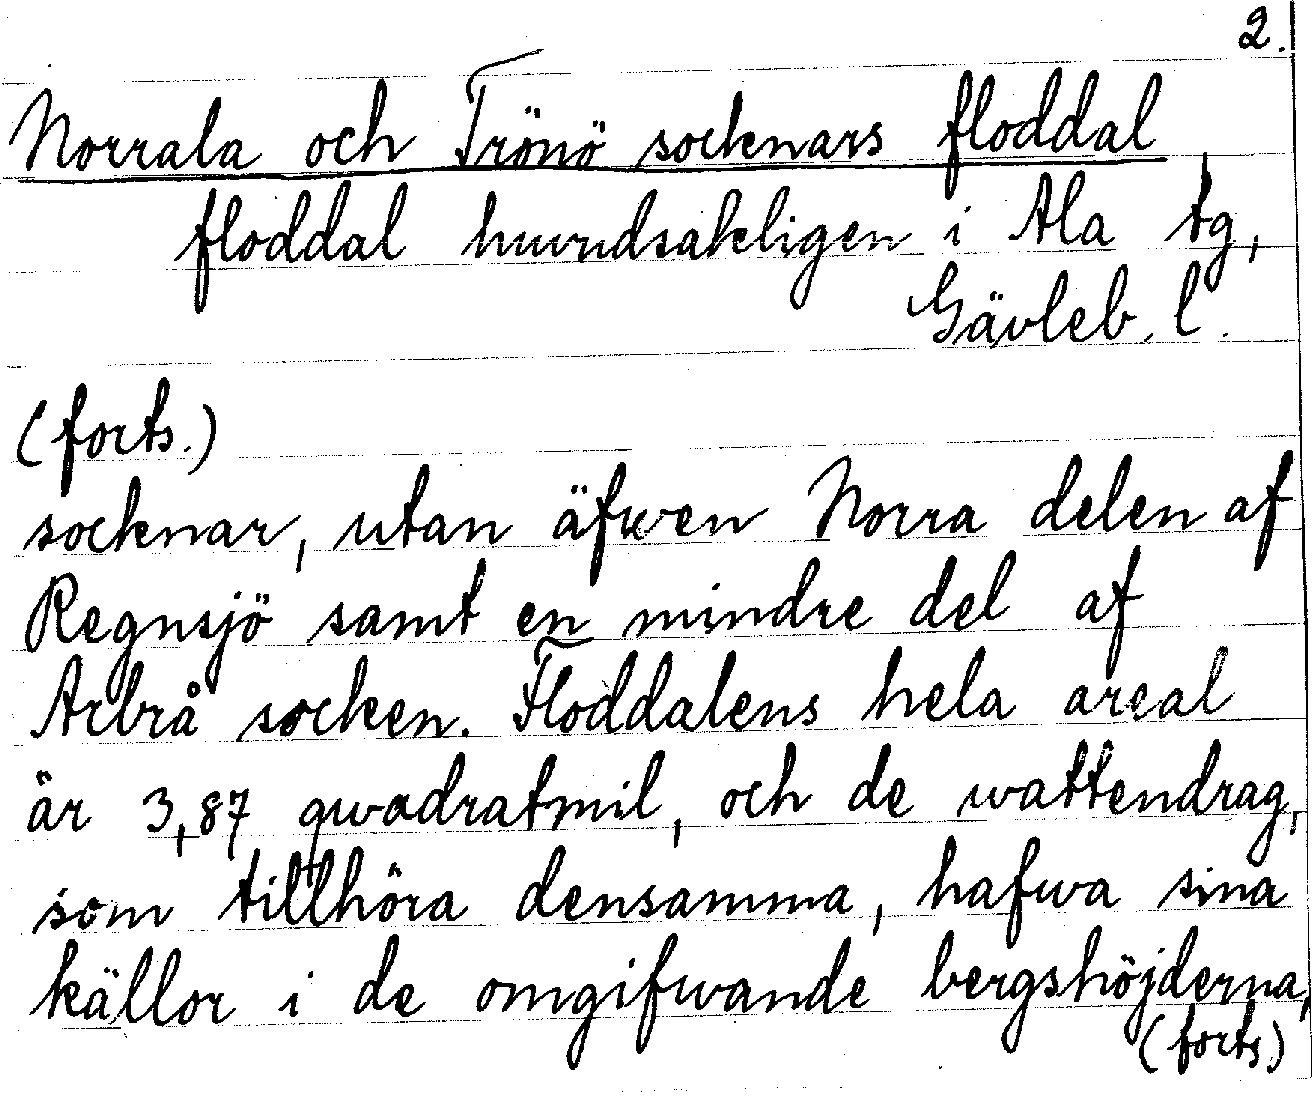 2.
Norrala och Trönö socknars floddal
floddal huvudsakligen i Ala tg,
Gävleb. l.
(forts.)
socknar, utan äfwen Norra delen af
Regnsjö samt en mindre del af
Arbrå socken. Floddalens hela areal
är 3,87 qwadratmil, och de wattendrag,
som tillhöra densamma, hafwa sina
källor i de omgifwande bergshöjderna,
(forts)